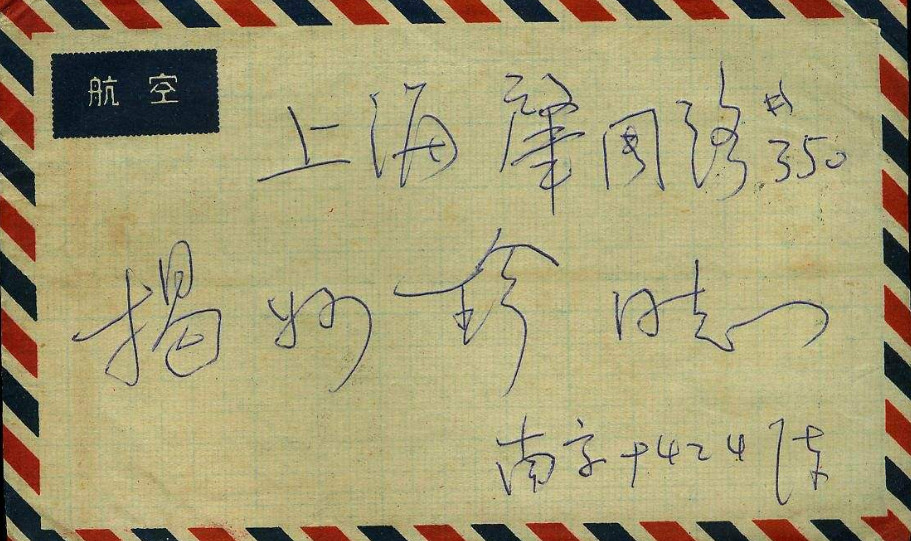 航空
上海肇周路#350
揭妙珍 同志
南京9424陈